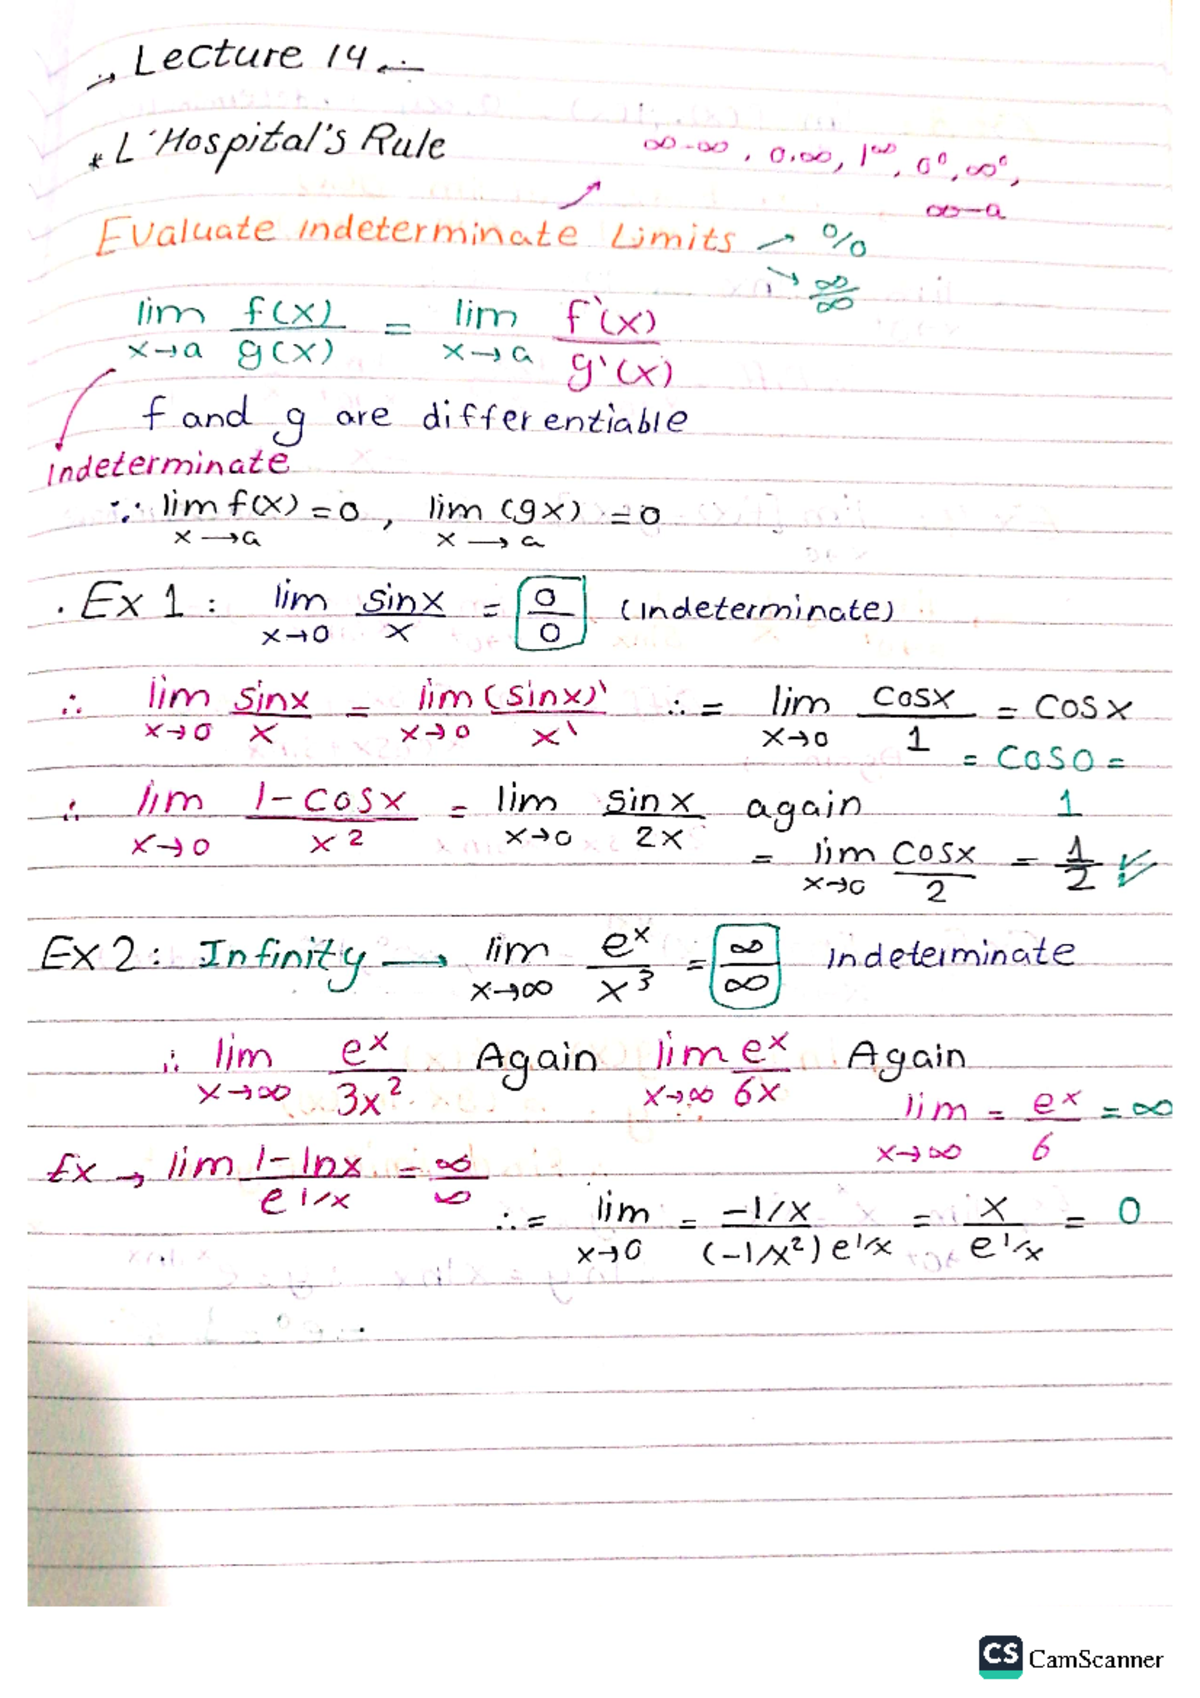 → Lecture 14 ←
* L'Hospital's Rule
∞-∞, 0.∞, 1^∞, 0⁰, ∞⁰,
∞-a
Evaluate indeterminate Limits → 0/0
→ ∞/∞
lim x→a f(x)/g(x) = lim x→a f'(x)/g'(x)
f and g are differentiable
Indeterminate
∵ lim x→a f(x) = 0, lim x→a (gx) = 0
. Ex 1: lim x→0 sinx/x = 0/0 (indeterminate)
∴ lim x→0 sinx/x = lim x→0 (sinx)'/x' ∴ = lim x→0 cosx/1 = cosx
= cos0 =
1
∴ lim x→0 1-cosx/x² = lim x→0 sinx/2x again
= lim x→0 cosx/2 = 1/2
Ex 2: Infinity → lim x→∞ e^x/x³ = ∞/∞ indeterminate
∴ lim x→∞ e^x/3x² Again lim x→∞ e^x/6x Again
lim x→∞ = e^x/6 = ∞
Ex → lim 1-lnx/e^1/x = ∞/∞
∴ = lim x→0 = -1/x/(-1/x²)e^1/x = x/e^1/x = 0
CS CamScanner